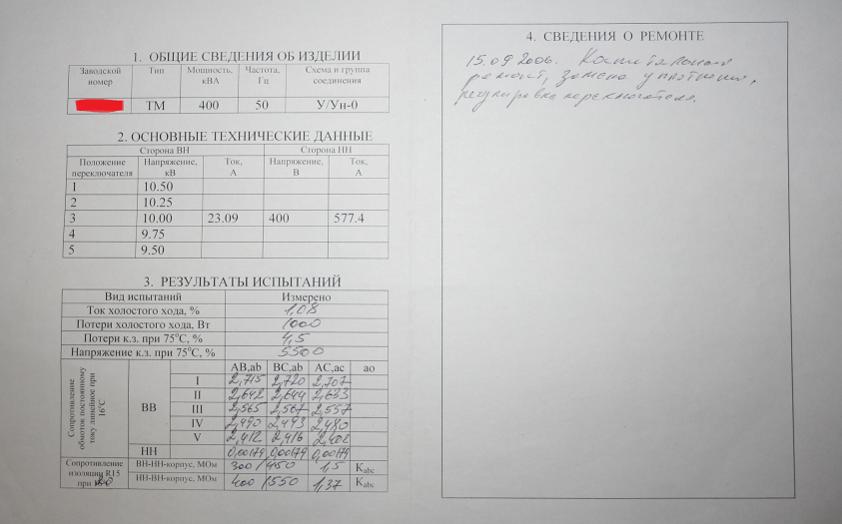 1. ОБЩИЕ СВЕДЕНИЯ ОБ ИЗДЕЛИИ
Заводской номер Тип Мощность, кВА Частота, Гц Схема и группа соединения
ТМ 400 50 У/Ун-0
2. ОСНОВНЫЕ ТЕХНИЧЕСКИЕ ДАННЫЕ
Сторона ВН Сторона НН
Положение переключателя Напряжение, кВ Ток, А Напряжение, В Ток, А
1 10.50
2 10.25
3 10.00 23.09 400 577.4
4 9.75
5 9.50
3. РЕЗУЛЬТАТЫ ИСПЫТАНИЙ
Вид испытаний Измерено
Ток холостого хода, % 1,08
Потери холостого хода, Вт 1000
Потери к.з. при 75°С, % 4,5
Напряжение к.з. при 75°С, % 5500
Сопротивление обмоток постоянному току линейное при 16°С
АВ,ab ВС,ab АС,ас ао
ВВ
I 2,715 2,720 2,707
II 2,642 2,644
III 2,565 2,567 2,557
IV 2,490 2,493 2,480
V 2,412 2,416 2,402
НН 0,00179 0,00179 0,00179
Сопротивление изоляции R15 при 20
ВН-НН-корпус, МОм 300 /450 1,5 Kabc
НН-ВН-корпус, МОм 400 /550 1,37 Kabc
4. СВЕДЕНИЯ О РЕМОНТЕ
15.09.2006. Капитальный
ремонт, замена уплотнения,
регулировка переключателя.